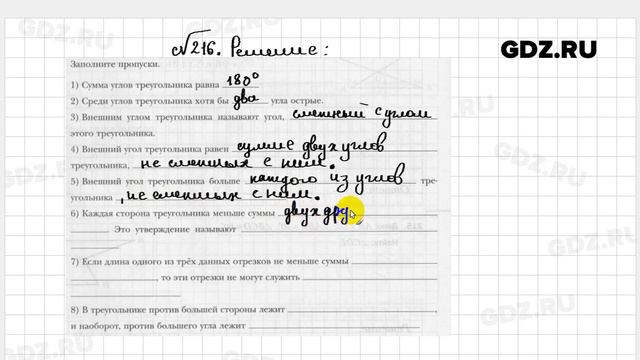 №216. Решение:
GDZ.RU
Заполните пропуски.
1) Сумма углов треугольника равна 180°
2) Среди углов треугольника хотя бы два угла острые.
3) Внешним углом треугольника называют угол, смежный с углом
этого треугольника.
4) Внешний угол треугольника равен сумме двух углов
треугольника, не смежных с ним.
5) Внешний угол треугольника больше каждого из углов тре-
угольника, не смежных с ним.
6) Каждая сторона треугольника меньше суммы двух дру
. Это утверждение называют
7) Если длина одного из трёх данных отрезков не меньше суммы
, то эти отрезки не могут служить
8) В треугольнике против большей стороны лежит
и наоборот, против большего угла лежит